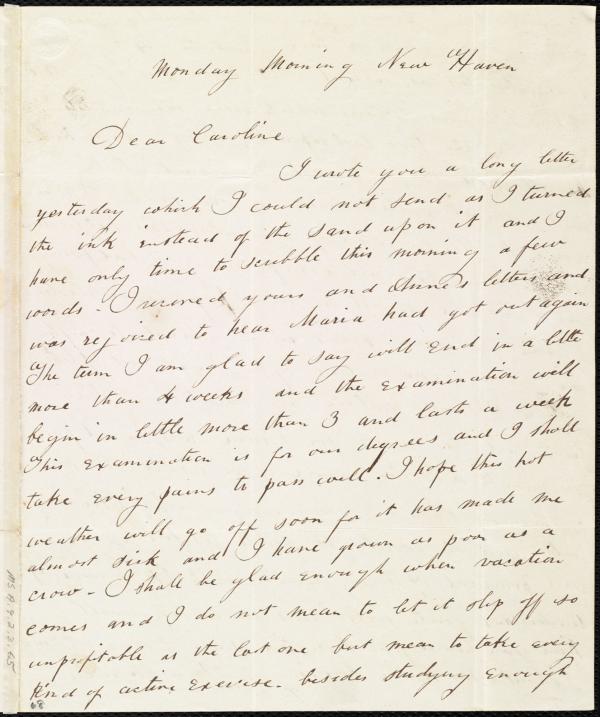 Monday Morning New Haven
Dear Caroline
I wrote you a long letter
yesterday which I could not send as I turned
the ink instead of the sand upon it and I
have only time to scribble this morning a few
words - I received yours and Anne's letters and
was rejoiced to hear Maria had got out again
The term I am glad to say will end in a little
more than 4 weeks and the examination will
begin in little more than 3 and lasts a week
This examination is for our degrees and I shall
take every pains to pass well. I hope this hot
weather will go off soon for it has made me
almost sick and I have grown as poor as a
crow - I shall be glad enough when vacation
comes and I do not mean to let it slip off so
unprofitable as the last one but mean to take every
kind of active exercise - besides studying enough
MS.A.9.2.3.65